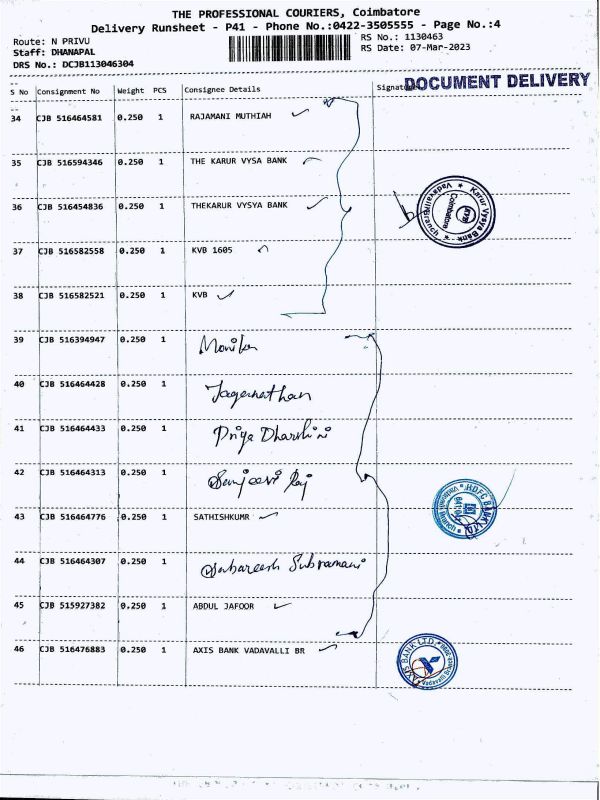 THE PROFESSIONAL COURIERS, Coimbatore
Delivery Runsheet - P41 - Phone No.:0422-3505555 - Page No.:4
Route: N PRIVU
Staff: DHANAPAL
DRS No.: DCJB113046304
RS No.: 1130463
RS Date: 07-Mar-2023
DOCUMENT DELIVERY
S No Consignment No Weight PCS Consignee Details Signature
34 CJB 516464581 0.250 1 RAJAMANI MUTHIAH
35 CJB 516594346 0.250 1 THE KARUR VYSA BANK
36 CJB 516454836 0.250 1 THEKARUR VYSYA BANK
Karur Vysya Bank
Vadavalli Branch
KVB
Coimbatore
37 CJB 516582558 0.250 1 KVB 1605
38 CJB 516582521 0.250 1 KVB
39 CJB 516394947 0.250 1 Monika
40 CJB 516464428 0.250 1 Jagenathan
41 CJB 516464433 0.250 1 Priya Dharshini
42 CJB 516464313 0.250 1 Sanjeevi Raj
HDFC BANK LTD.
Vadavalli Branch
43 CJB 516464776 0.250 1 SATHISHKUMR
44 CJB 516464307 0.250 1 Sabareesh Subramani
45 CJB 515927382 0.250 1 ABDUL JAFOOR
46 CJB 516476883 0.250 1 AXIS BANK VADAVALLI BR
AXIS BANK LTD.